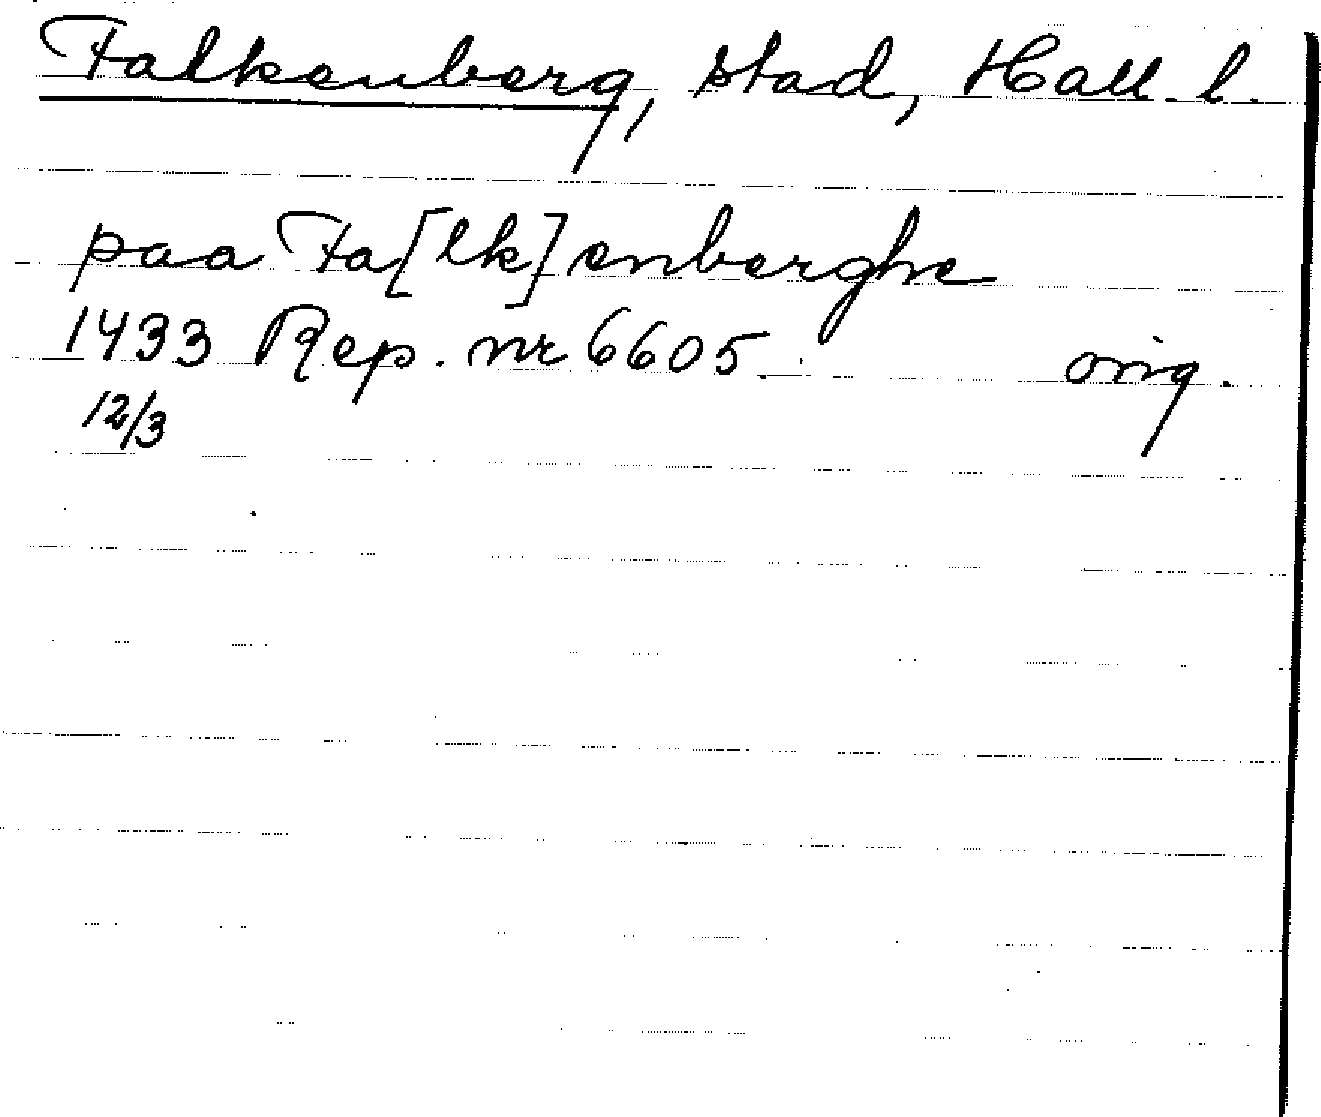 Falkenberg, stad, Hall. l.
paa Fa[lk]enberghe
1433 Rep. nr 6605. orig.
12/3